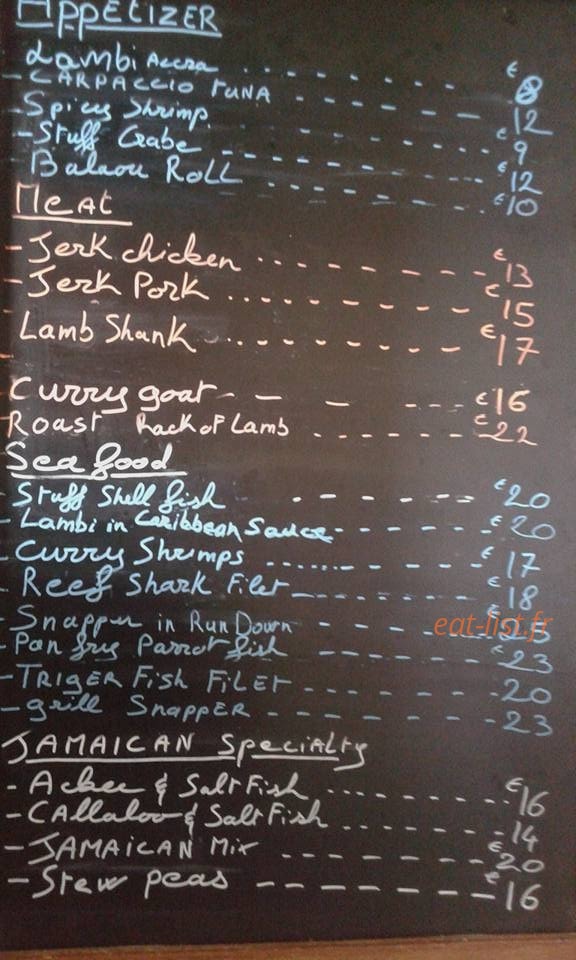 Appetizer
Lambi Accra - - - - - - € 8
- CARPACCIO TUNA - - - - - - 12
Spicy Shrimp - - - - - - € 9
- Stuff Crabe - - - - - - € 12
Balaou Roll - - - - - - € 10
Meat
- Jerk chicken - - - - - - € 13
- Jerk Pork - - - - - - € 15
Lamb Shank - - - - - - € 17
Curry goat - - - - - - € 16
Roast Rack of Lamb - - - - - - € 22
Sea food
- Stuff Shell fish - - - - - - € 20
- Lambi in Caribbean Sauce - - - - - - € 20
- Curry Shrimps ...... - - - € 17
- Reef Shark Filet - - - - - - € 18
- Snapper in Run Down - - - - - - €
eat-list.fr
- Pan fry Parrot fish - - - - - - € 23
- TRIGER Fish FiLET - - - - - - 20
- grill SNAPPER - - - - - - 23
JAMAICAN Specialty
- Ackee & Salt Fish - - - - - - € 16
- CAllaloo & Salt Fish - - - - - - 14
- JAMAiCAN Mix - - - - - - € 20
- Stew peas - - - - - - € 16